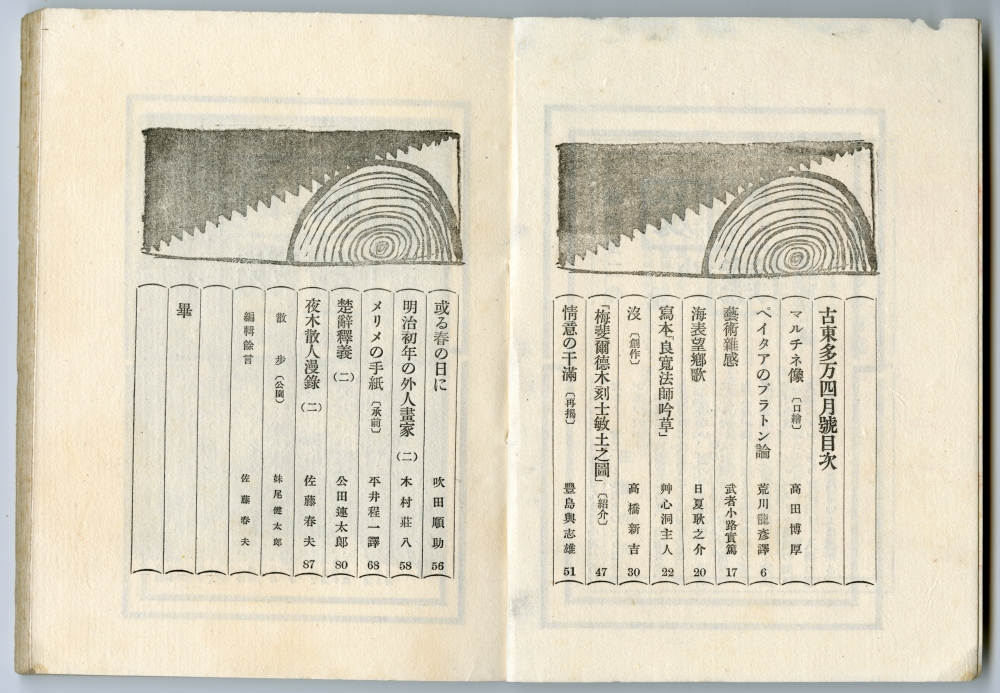 古東多万四月號目次
マルチネ像〔口繪〕 高田博厚
ペイタアのプラトン論 荒川龍彥譯 6
藝術雜感 武者小路實篤 17
海表望鄕歌 日夏耿之介 20
寫本「良寬法師吟草」 艸心洞主人 22
沒〔創作〕 高橋新吉 30
「梅斐爾德木刻士敏土之圖」〔紹介〕 47
情意の干滿〔再揭〕 豐島與志雄 51
或る春の日に 吹田順助 56
明治初年の外人畫家(二) 木村莊八 58
メリメの手紙〔承前〕 平井程一譯 68
楚辭釋義(二) 公田連太郎 80
夜木散人漫錄(二) 佐藤春夫 87
散步〔公園〕 妹尾健太郎
編輯餘言 佐藤春夫
畢